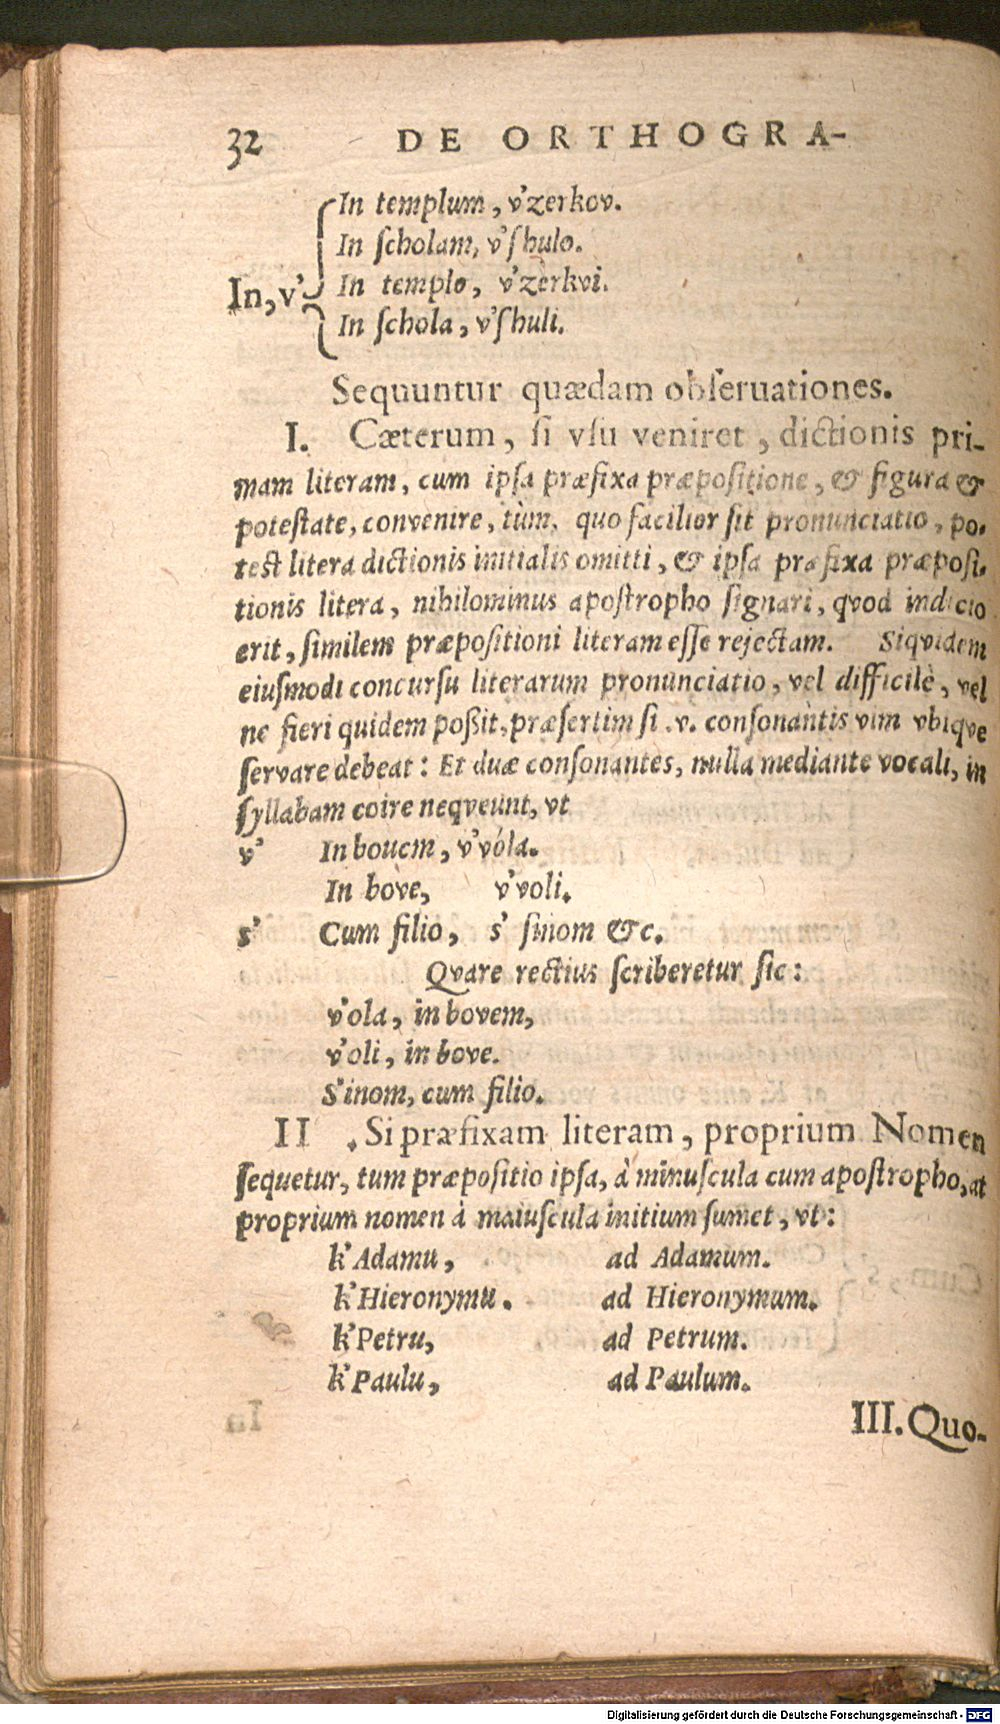 32 DE ORTHOGRA-
In templum, v'zerkov.
In ſcholam, v'ſhulo.
In, v'
In templo, v'zèrkvi.
In ſchola, v'ſhuli.
Sequuntur quædam obſeruationes.
I. Cæterum, ſi vſu veniret, dictionis pri-
mam literam, cum ipſa præfixa præpoſitione, & figura &
poteſtate, convenire, tùm, quo facilior ſit pronunciatio, po-
teſt litera dictionis initialis omitti, & ipſa præfixa præpoſi-
tionis litera, nihilominus apoſtropho ſignari, qvod indicio
erit, ſimilem præpoſitioni literam eſſe rejectam. Siqvidem
eiuſmodi concurſu literarum pronunciatio, vel difficilè, vel
ne fieri quidem poßit, præſertim ſi .v. conſonantis vim vbiqve
ſervare debeat: Et duæ conſonantes, nulla mediante vocali, in
ſyllabam coire neqveunt, vt
v' In bouem, v'vóla.
In bove, v'voli.
s' Cum filio, s' ſinom &c.
Qvare rectius ſcriberetur ſic:
v'ola, in bovem,
v'oli, in bove.
S'inom, cum filio.
II. Si præfixam literam, proprium Nomen
ſequetur, tum præpoſitio ipſa, à minuſcula cum apoſtropho, at
proprium nomen à maiuſcula initium ſumet, vt:
k'Adamu, ad Adamum.
k'Hieronymu. ad Hieronymum.
k'Petru, ad Petrum.
k'Paulu, ad Paulum.
III. Quo-
Digitalisierung gefördert durch die Deutsche Forschungsgemeinschaft - DFG